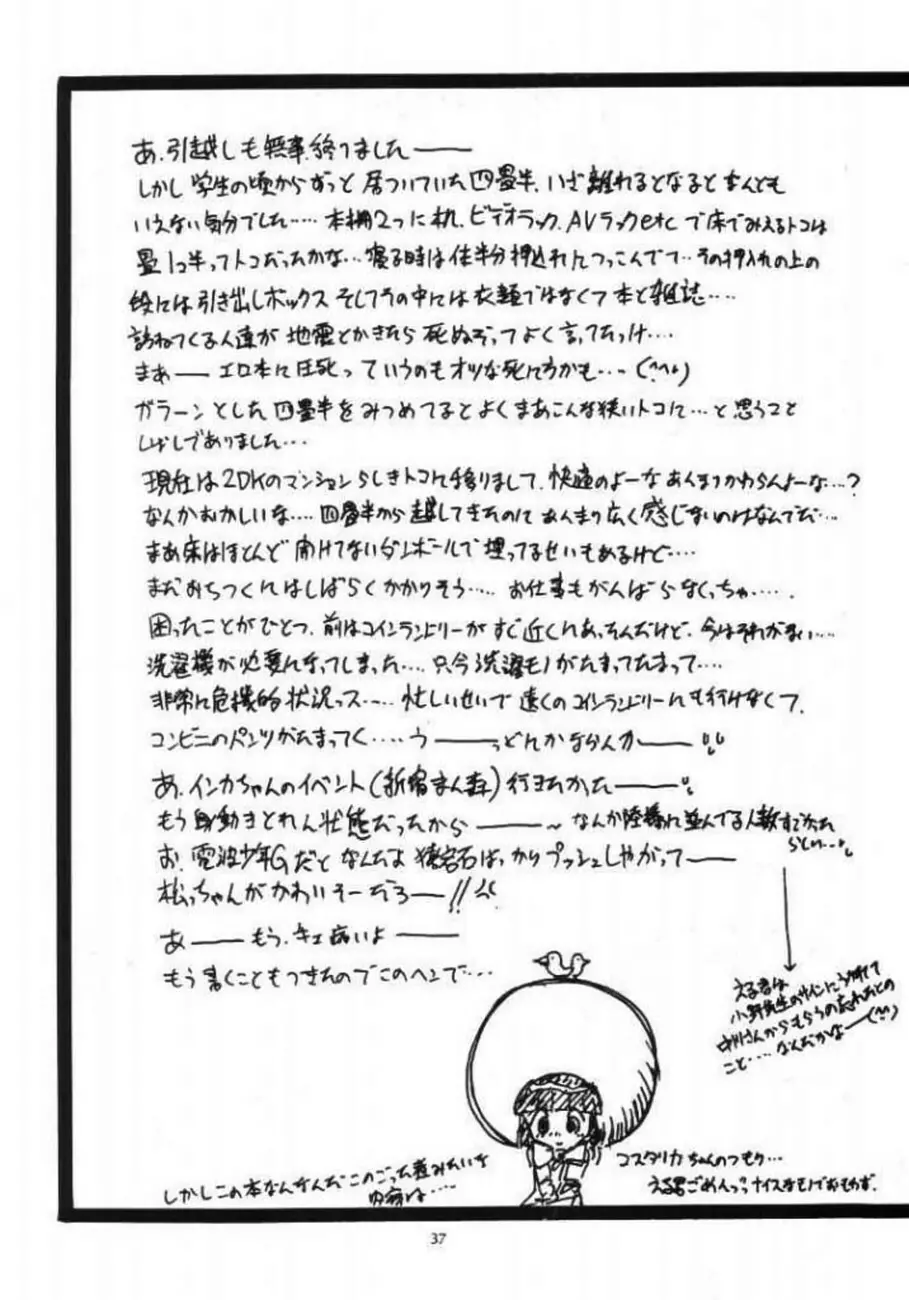 あ、引越しも無事、終りました――
しかし学生の頃からずっと居ついていた四畳半、いざ離れるとなるとなんとも
いえない気分でした…… 本棚2つに机、ビデオラック、AVラックetcで床でみえるトコは
畳1コ半ってトコだったかな… 寝る時は体半分押込れにつっこんでて… その押入れの上の
段には引き出しボックス そしてその中には衣類ではなくて本と雑誌……
訪ねてくる人達が地震とかきたら死ぬぞってよく言ってたっけ……
まぁ―― エロ本に圧死っていうのもオツな死に方かも…
ガラーンとした四畳半をみつめてるとよくまあこんな狭いトコに…と思うこと
しばしでありました…
現在は2DKのマンションらしきトコに移りまして、快適のよーなあんまりかわらんよーな…?
なんかおかしいな…… 四畳半から越してきたのにあんまり広く感じないのはなんでだ…
まあ床はほとんど開けてないダンボールで埋ってるせいもあるけど……
まだおちつくにはしばらくかかりそう…… お仕事もがんばらなくっちゃ……
困ったことがひとつ、前はコインランドリーがすぐ近くにあったんだけど、今はそれがない……
洗濯機が必要になってしまった…… 只今洗濯モノがたまってたまって……
非常に危機的状況っス…… 忙しいせいで遠くのコインランドリーにも行けなくて、
コンビニのパンツがたまってく…… う――っどんかならんか――
あ、インカちゃんのイベント(新宿まんが森)行きたかった――
もう身動きとれん状態だったから――〜 なんか陸橋に並んでる人数すごかった
らしい…
お、電波少年Gだと なんだよ猿岩石ばっかりプッシュしやがって――
松っちゃんがかわいそーだろ――!!
あ―― もう、 病いよ――
もう書くこともつきたのでこのヘンで…
える君は
小野先生のサインにうかれて
さんからもらうの忘れたとの
こと…… なんだかな――(^^)
コスタリカちゃんのつもり…
える君ごめんっっ ナイスなモノでおもわず、
しかしこの本なんなんだ このごった煮みたいな
内容は……
37